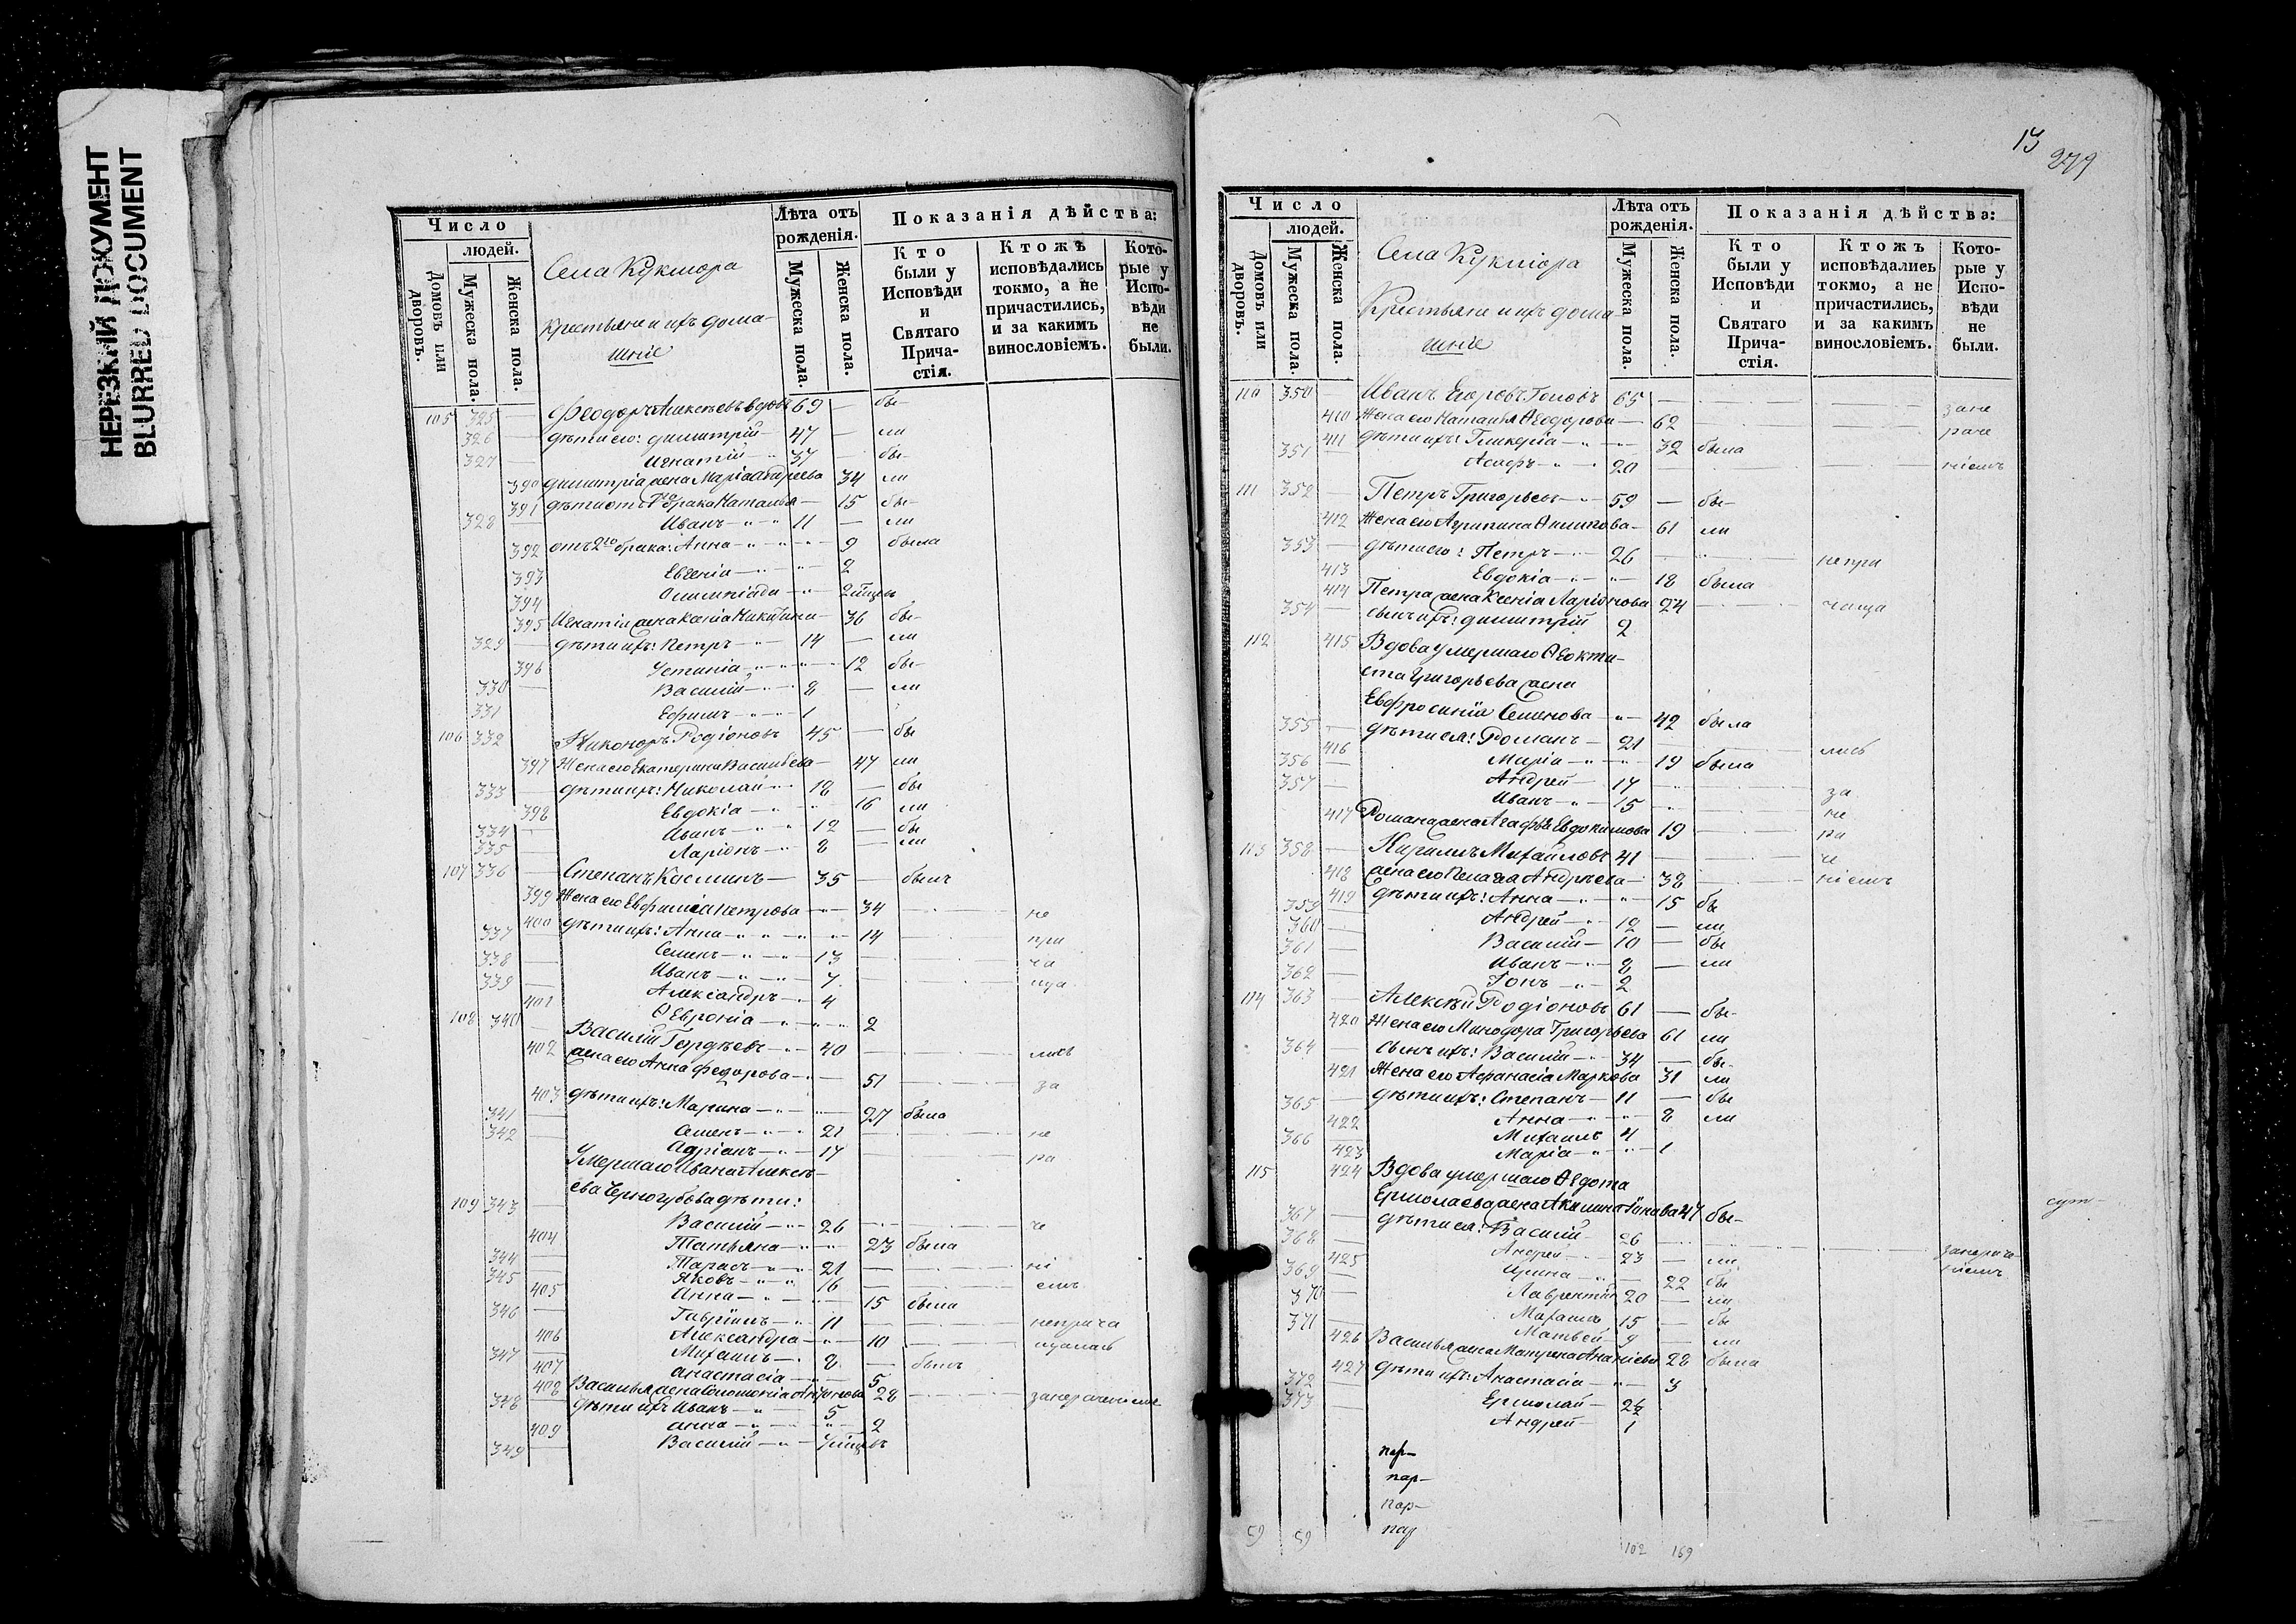 НЕРЕЗКИЙ ДОКУМЕНТ
BLURRED DOCUMENT
Число
людей.
Домовъ или дворовъ.
Мужеска пола.
Женска пола.
Села Кукмора
Крестьяне и ихъ дома-
шніе
Лѣта отъ рожденія.
Мужеска пола.
Женска пола.
Показанія дѣйства:
Кто были у Исповѣди и Святаго Прича-стія.
Ктожъ исповѣдались токмо, а не причастились, и за какимъ винословіемъ.
Кото-рые у Испо-вѣди не были.
105 325 — Феодоръ Алексѣевъ вдовъ 69 — бы-
326 — дѣти его: Димитрій — 47 — ли
327 — Игнатій — 37 — бы-
390 Димитрія жена Марія Андреева 34 ли
391 дѣти отъ 1го брака Наталья — 15 бы-
328 — Иванъ — 11 — ли
392 отъ 2го брака: Анна — 9 была
393 Евгенія — 2
394 Олимпіада —
395 Игнатія жена Ксенія Никитина — 36 бы-
329 — дѣти ихъ: Петръ — 14 — ли
396 Устинія — 12 бы-
330 — Василій — 8 — ли
331 Ефимъ — 1
106 332 Никоноръ Родіоновъ 45 — бы
397 Жена его Екатерина Васильева — 47 ли
333 — дѣти ихъ: Николай — 18 — бы
398 Евдокія — 16 ли
334 — Иванъ — 12 — бы
335 — Ларіонъ — 8 — ли
107 336 — Степанъ Косминъ — 35 — былъ
399 Жена его Евфимія Петрова — 34 — не
400 дѣти ихъ: Анна — 14 — при
337 — Семенъ — 13 — ча
338 — Иванъ — 7 — ща
339 — Александръ — 4
401 Февронія — 2
108 340 — Василій Гордѣевъ — 40 — лись
402 жена его Анна Федорова — 51 — за
403 дѣти ихъ: Марина — 27 была
341 — Семенъ — 21 — не
342 — Адріанъ — 17 — ра
Умершаго Ивана Алексѣ-
ева Черногубова дѣти:
109 343 — Василій — 26 — че
404 Татьяна — 23 была
344 — Тарасъ — 21 — ні
345 — Яковъ — 16 — емъ
405 Анна — 15 была
346 — Гавріилъ — 11 — неприча
406 Александра — 10 — щалась
347 — Михаилъ — 8 — былъ
407 Анастасія — 5
408 Василья жена 28 — занераченіемъ
348 — дѣти ихъ Иванъ — 5
409 Анна — 2
349 — Василій —
13
279
Число
людей.
Домовъ или дворовъ.
Мужеска пола.
Женска пола.
Села Кукмора
Крестьяне и ихъ дома-
шніе
Лѣта отъ рожденія.
Мужеска пола.
Женска пола.
Показанія дѣйства:
Кто были у Исповѣди и Святаго Прича-стія.
Ктожъ исповѣдались токмо, а не причастились, и за какимъ винословіемъ.
Кото-рые у Испо-вѣди не были.
110 350 — Иванъ Егоровъ 65 — зане
410 Жена его Наталья Ѳеодорова — 62 — раче
411 дѣти ихъ: Гликерія — 32 была
351 — Асафъ — 20 — ніемъ
111 352 — Петръ Григорьевъ — 59 — бы-
412 Жена его Агрипина Филипова — 61 ли
353 — дѣти его: Петръ — 26 — непри
413 Евдокія — 18 была
414 Петра жена Ксенія Ларіонова 24 — чаща
354 — сынъ ихъ: Димитрій 2
112 415 Вдова умершаго Ѳеокти-
ста Григорьева жена
Евфросинія Семенова — 42 была
355 — дѣти ея: Романъ — 21 — лись
416 Марія — 19 была
356 — Андрей — 17 — за
357 — Иванъ — 15 — не
417 Романа жена Агафья Евдокимова 19 — ра
113 358 — Кирилъ Михайловъ 41 — че
418 жена его Пелагія Андрѣева — 38 — ніемъ
419 дѣти ихъ: Анна — 15 бы
359 — Андрей — 12 — ли
360 — Василій — 10 — бы
361 — Иванъ — 8 — ли
362 — Іонъ — 2
114 363 — Алексѣй Родіоновъ 61 — бы-
420 Жена его Минодора Григорьева 61 ли
364 — сынъ ихъ: Василій — 34 — бы-
421 Жена его Афанасія Маркова 31 ли
365 — дѣти ихъ: Степанъ — 11 — бы
422 Анна — 8 ли
366 — Михаилъ 4
423 Марія — 1
115 424 Вдова умершаго Ѳедота
Ермолаева жена Акилина 47 бы-
367 — дѣти ея: Василій — 26 — занерачѣ
368 — Андрей — 23 — ли ніемъ
425 Ирина — 22 бы
369 — Лаврентій 20 — ли
370 — Михаилъ 15 — бы
371 — Матвей — 9 — ли
426 Василья жена Матрена Ананіева 28 была
427 дѣти ихъ: Анастасія — 3
372 — Ермолай — 2
373 — Андрей — 1
пер-
пар-
пар-
пар
59 59 102 169